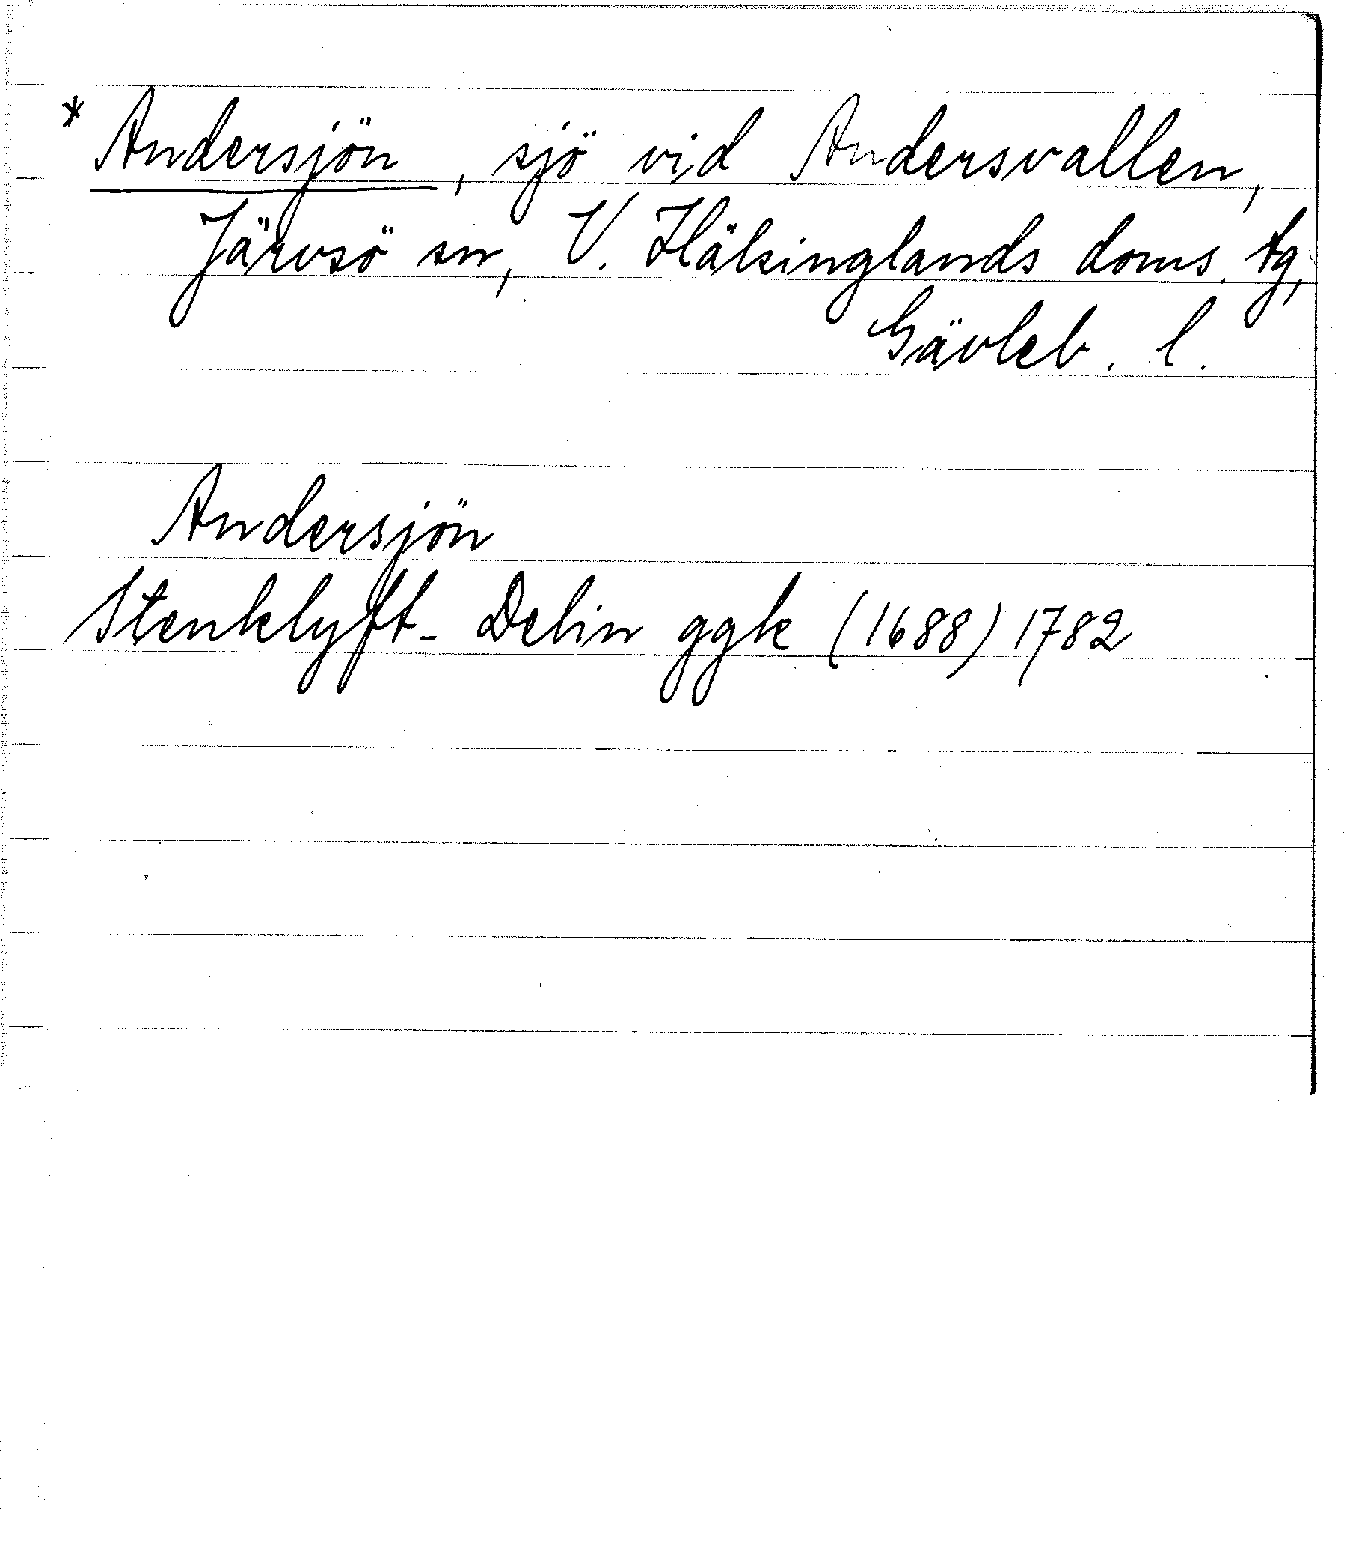 * Andersjön, sjö vid Andersvallen,
Järvsö sn, V. Hälsinglands doms. tg,
Gävleb. l.
Andersjön
Stenklyft- Delin ggk (1688) 1782